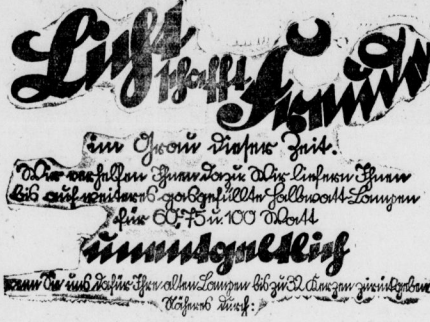 Licht
schafft
Freude
im Grau dieser Zeit.
Wir verhelfen Ihnen dazu. Wir liefern Ihnen
bis auf weiteres gasgefüllte Halbwatt-Lampen
für 60, 75 u. 100 Watt
unentgeltlich
wenn Sie uns dafür Ihre alten Lampen bis zu 32 Kerzen zurückgeben
Näheres durch: